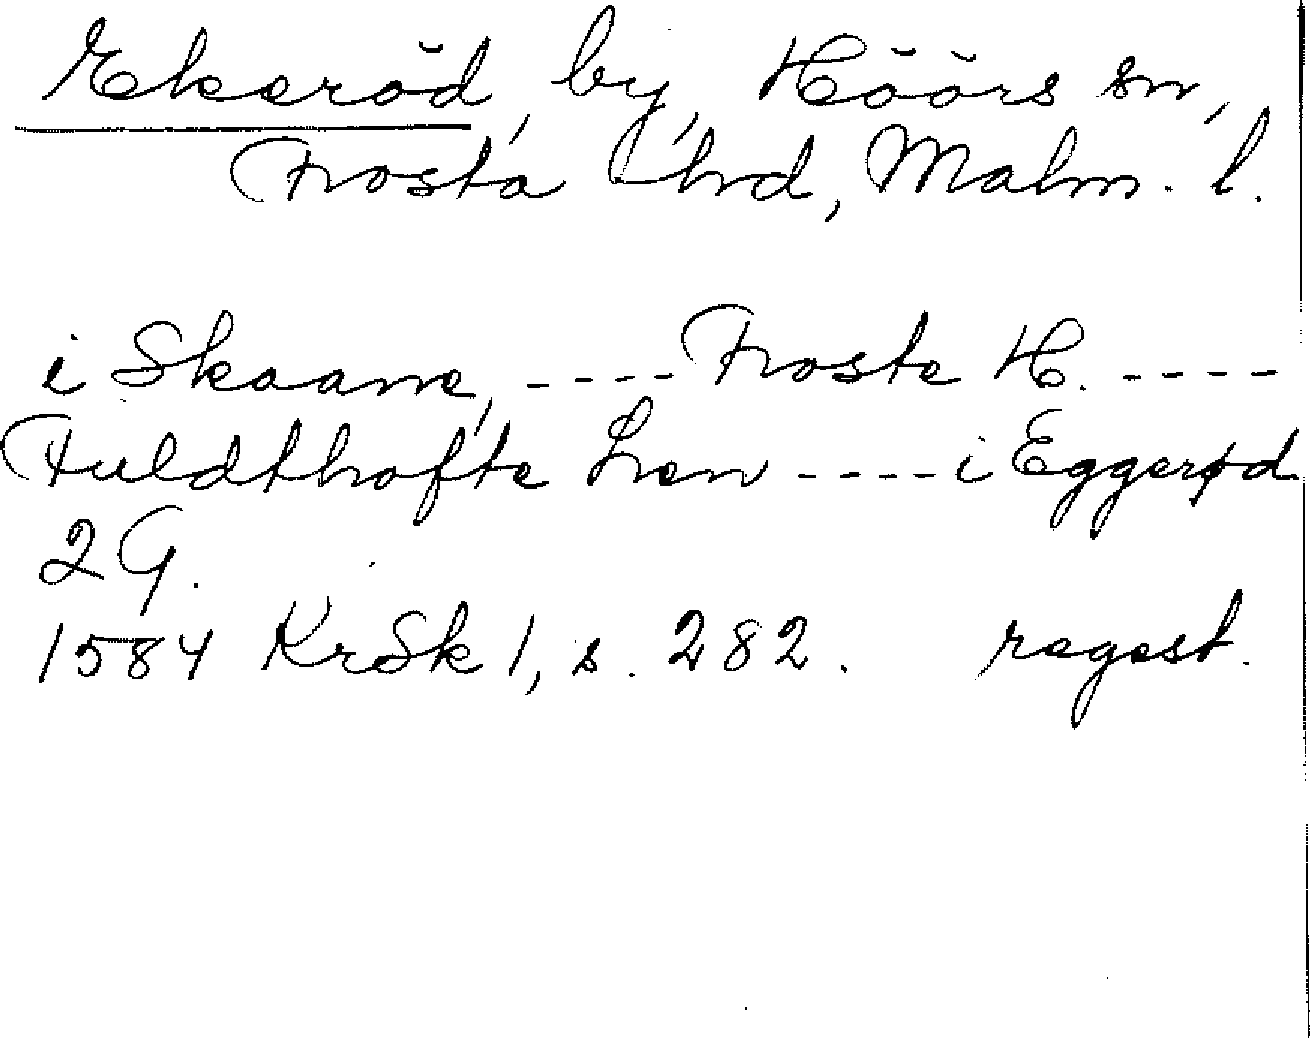 Ekeröd, by, Höörs sn,
Frosta hrd, Malm. l.
i Skaane, ---- Froste H. ----
Fuldthofte Len ---- i Eggerød
2 G.
1584 KrSk 1, s. 282. regest.